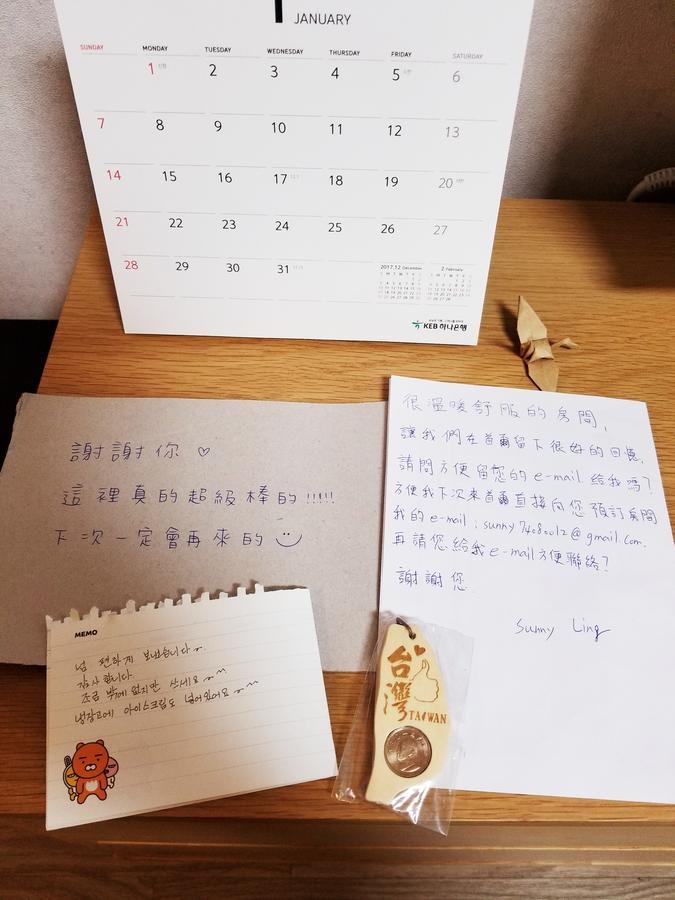 1 JANUARY
SUNDAY MONDAY TUESDAY WEDNESDAY THURSDAY FRIDAY SATURDAY
1 2 3 4 5 6
7 8 9 10 11 12 13
14 15 16 17 18 19 20
21 22 23 24 25 26 27
28 29 30 31
2017.12 December 2 February
KEB 하나은행
謝謝你 ♡
這裡真的超級棒的!!!!!
下次一定會再來的
很溫暖舒服的房間,
讓我們在首爾留下很好的回憶,
請問方便留您的 e-mail 給我嗎?
方便我下次來首爾直接向您預訂房間
我的 e-mail : sunny74080012@gmail.com.
再請您給我 e-mail 方便聯絡?
謝謝您
Sunny Ling
MEMO
넘 편하게 보냈습니다~
감사합니다.
조금 밖에 없지만 쓰세요~^^
냉장고에 아이스크림도 넣어있어요~^^
台灣
TAIWAN